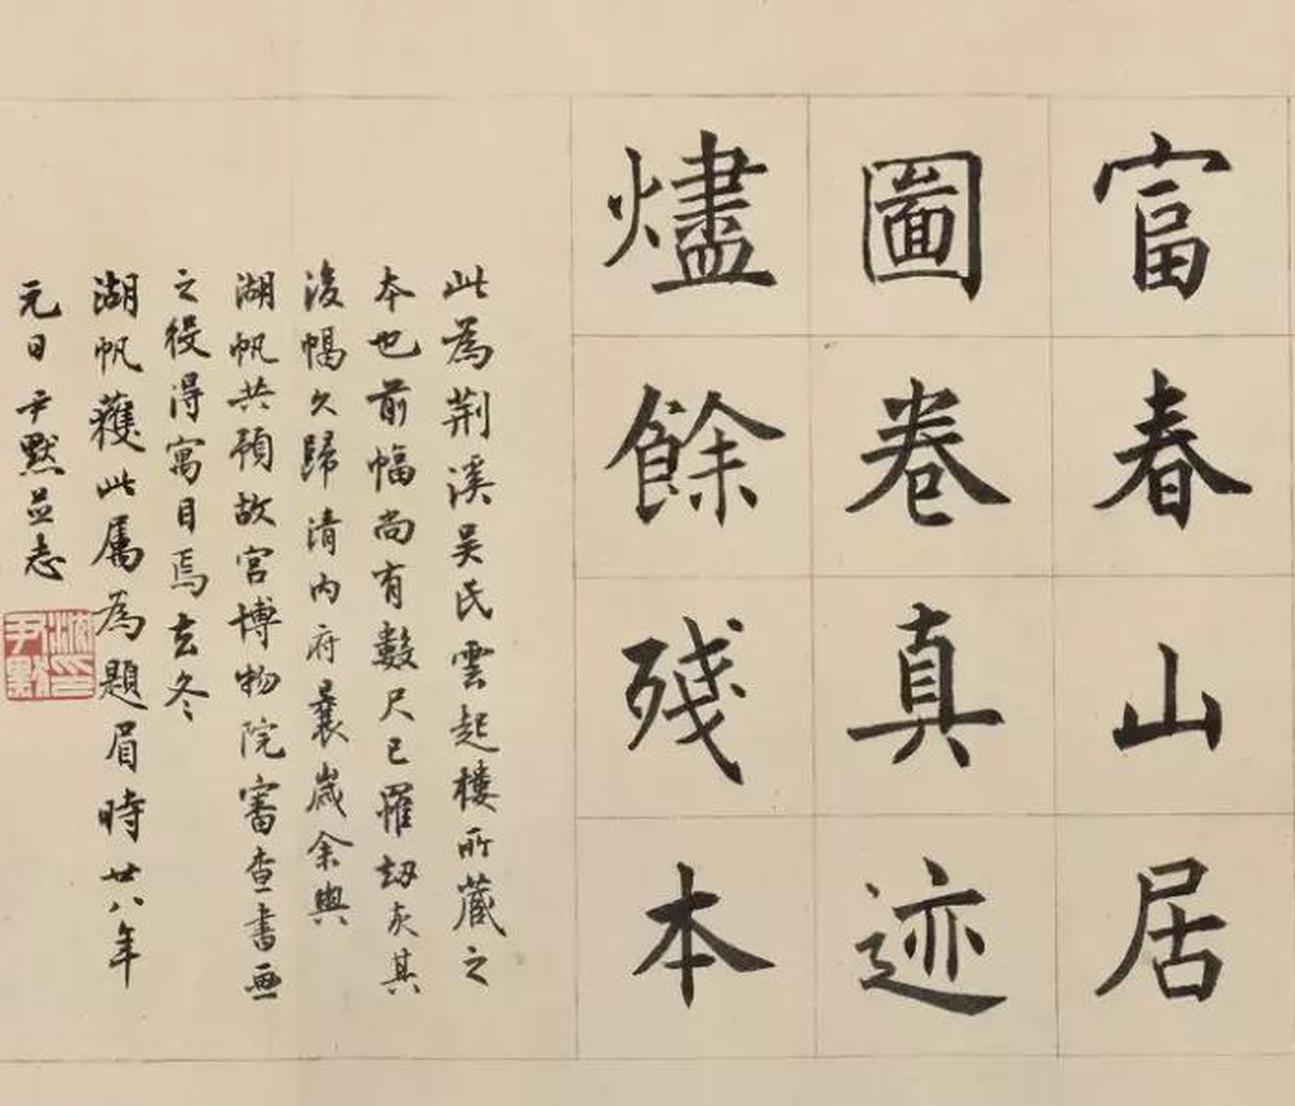 富春山居
圖卷真迹
燼餘殘本
此為荆溪吴氏雲起樓所藏之
本也前幅尚有數尺已罹劫灰其
後幅久歸清内府曩歲余與
湖帆共領故宫博物院審查書画
之役得寓目焉玄冬
湖帆獲此属為題眉時廿八年
元日尹默並志
沈尹默印